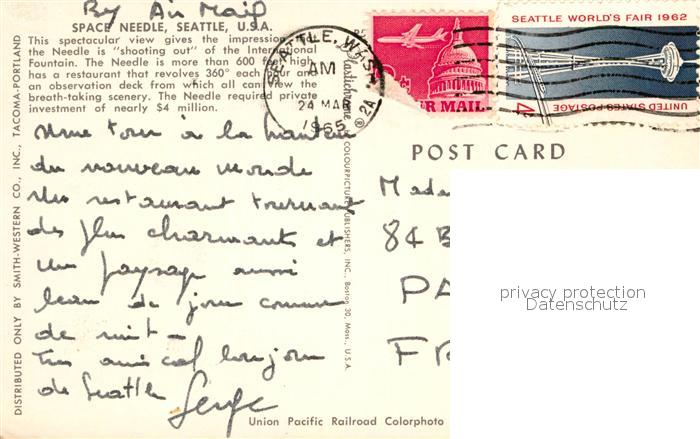 By Air Mail
SPACE NEEDLE, SEATTLE, U.S.A.
This spectacular view gives the impression
the Needle is "shooting out" of the International
Fountain. The Needle is more than 600 feet high,
has a restaurant that revolves 360° each hour and
an observation deck from which all can view the
breath-taking scenery. The Needle required private
investment of nearly $4 million.
Une tour à la hauteur
du nouveau monde
Un restaurant tournant
des plus charmants et
un paysage aussi
beau de jour comme
de nuit —
Très amical bonjour
de Seattle Serge
DISTRIBUTED ONLY BY SMITH-WESTERN CO., INC., TACOMA-PORTLAND
Plastichrome ®
COLOURPICTURE PUBLISHERS, INC., Boston 30, Mass., U.S.A.
SEATTLE, WASH.
AM
24 MAR
1965
2A
R MAIL
SEATTLE WORLD'S FAIR 1962
4¢
UNITED STATES POSTAGE
POST CARD
Made
84 B
PA
FR
privacy protection
Datenschutz
Union Pacific Railroad Colorphoto